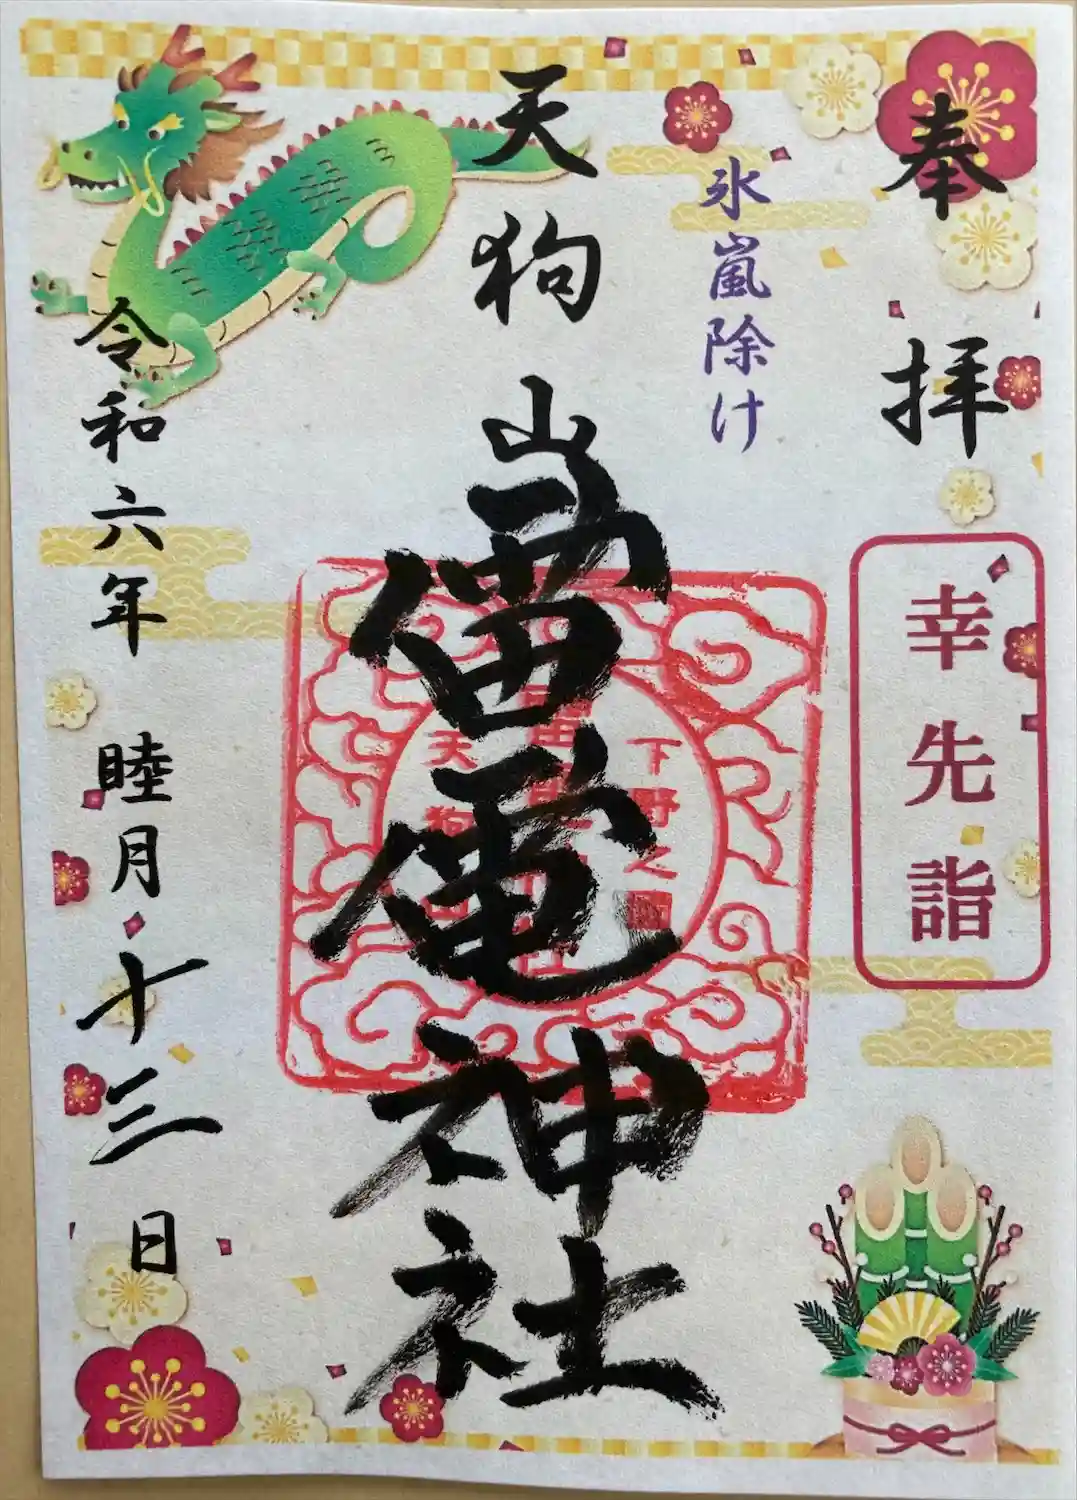 奉拝
幸先詣
氷嵐除け
天狗山雷電神社
下野之国
天狗
令和六年 睦月十三日